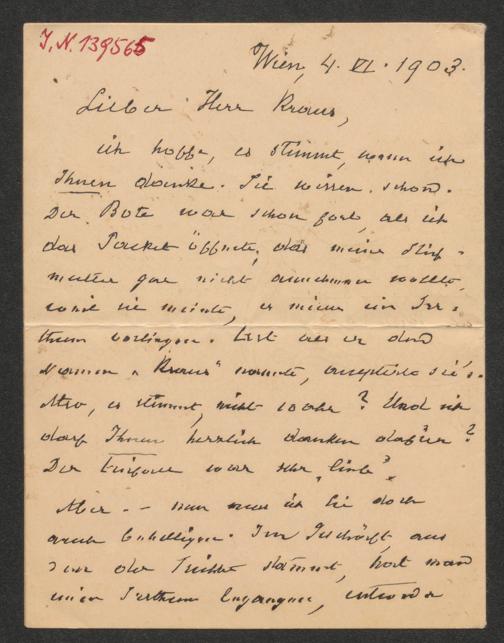 I. N. 139565
Wien, 4. VI. 1903.
Lieber Herr Kraus,
ich hoffe, es stimmt, wenn ich
Ihnen danke. Sie wissen schon.
Der Bote war schon fort, als ich
das Packet öffnete, das meine Stief-
mutter gar nicht annehmen wollte,
weil sie meinte, es müsse ein Irr-
thum vorliegen. Erst als er den
Namen „Kraus" nannte, acceptirte sie's.
Also, es stimmt, nicht wahr? Und ich
darf Ihnen herzlich danken dafür?
Der war sehr „lieb".
Aber -- nun muss ich Sie doch
auch behelligen. Im Geschäft, aus
dem die stammt, hat man
einen Irrthum begangen, entweder